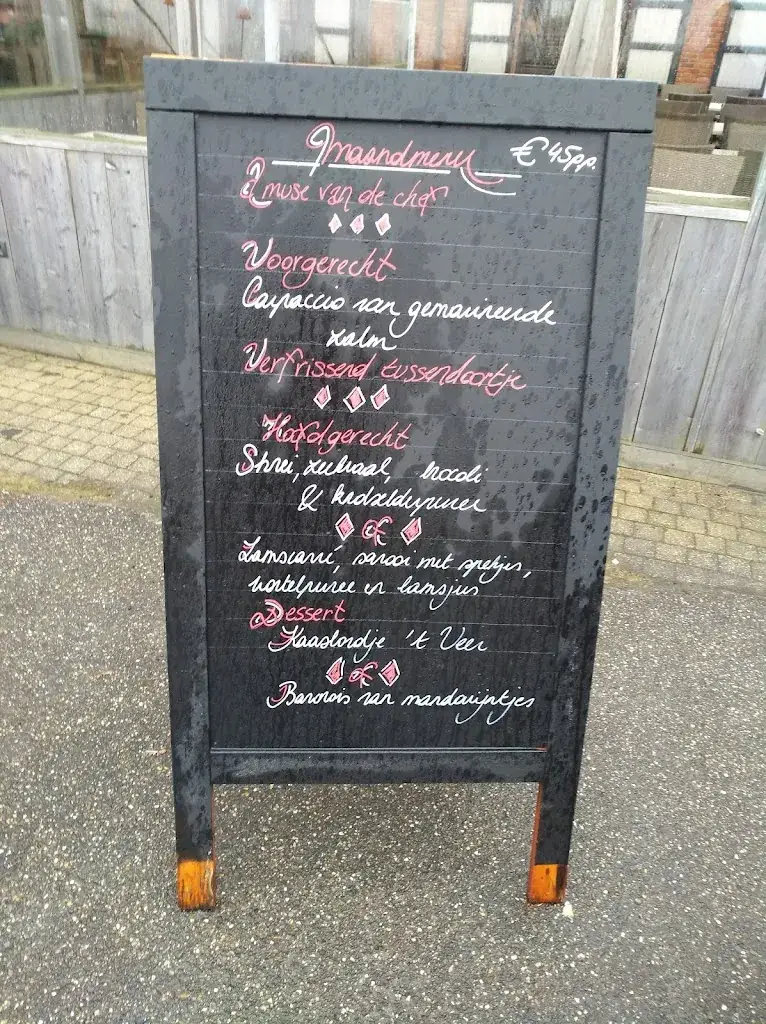 Maandmenu € 45 p.p.
Amuse van de chef
Voorgerecht
Carpaccio van gemarineerde
zalm
Verfrissend tussendoortje
Hoofdgerecht
Skrei, zeekraal,
&
of
Lamscarré, savooi met spekjes,
wortelpuree en lamsjus
Dessert
Kaasbordje 't Veer
of
Bavarois van mandarijntjes